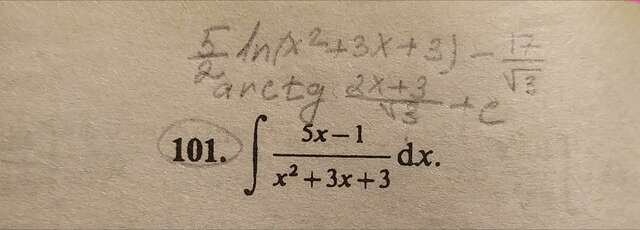 5/2 ln(x² + 3x + 3) - 17/√3
arctg (2x + 3)/√3 + c
101. ∫ (5x – 1)/(x² + 3x + 3) dx.